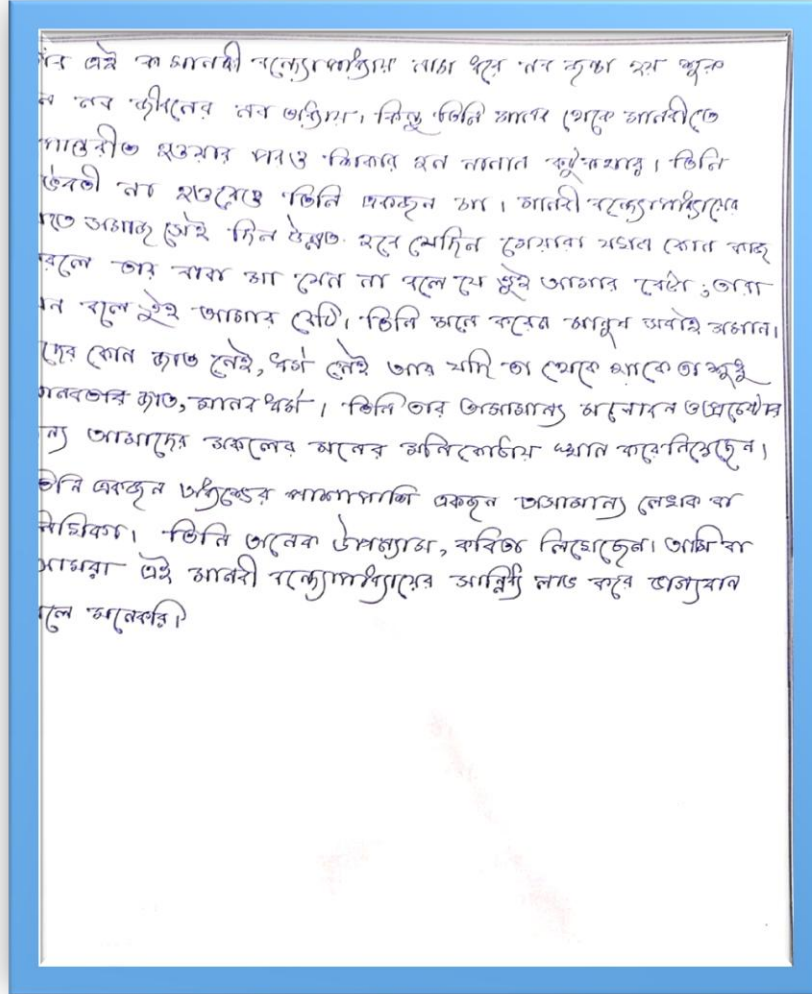 এই মানবী বন্দ্যোপাধ্যায় নাম ধরে নব জন্ম হয় শুরু
নব জীবনের নব অধ্যায়। কিন্তু তিনি মানব থেকে মানবীতে
হওয়ার পরও শিকার হন নানান কটুকথার। তিনি
না হওয়েও তিনি একজন মা। মানবী বন্দ্যোপাধ্যায়ের
মতে সমাজ সেই দিন উন্নত হবে যেদিন মেয়েরা মহান কোন কাজ
করলে তার বাবা মা যেন না বলে যে তুই আমার বেটা; তারা
বলে তুই আমার বেটি। তিনি মনে করেন মানুষ সবাই সমান।
কোন জাত নেই, ধর্ম নেই আর যদি তা থেকে থাকে তা শুধু
মানবতার জাত, মানব ধর্ম। তিনি তার অসামান্য ও প্রচেষ্টার
আমাদের সকলের মনের মনিকোঠায় স্থান করে নিয়েছেন।
তিনি একজন অধ্যক্ষের পাশাপাশি একজন অসামান্য লেখক বা
তিনি অনেক উপন্যাস, কবিতা লিখেছেন। আমি বা
আমরা এই মানবী বন্দ্যোপাধ্যায়ের সান্নিধ্য লাভ করে ভাগ্যবান
বলে মনেকরি।